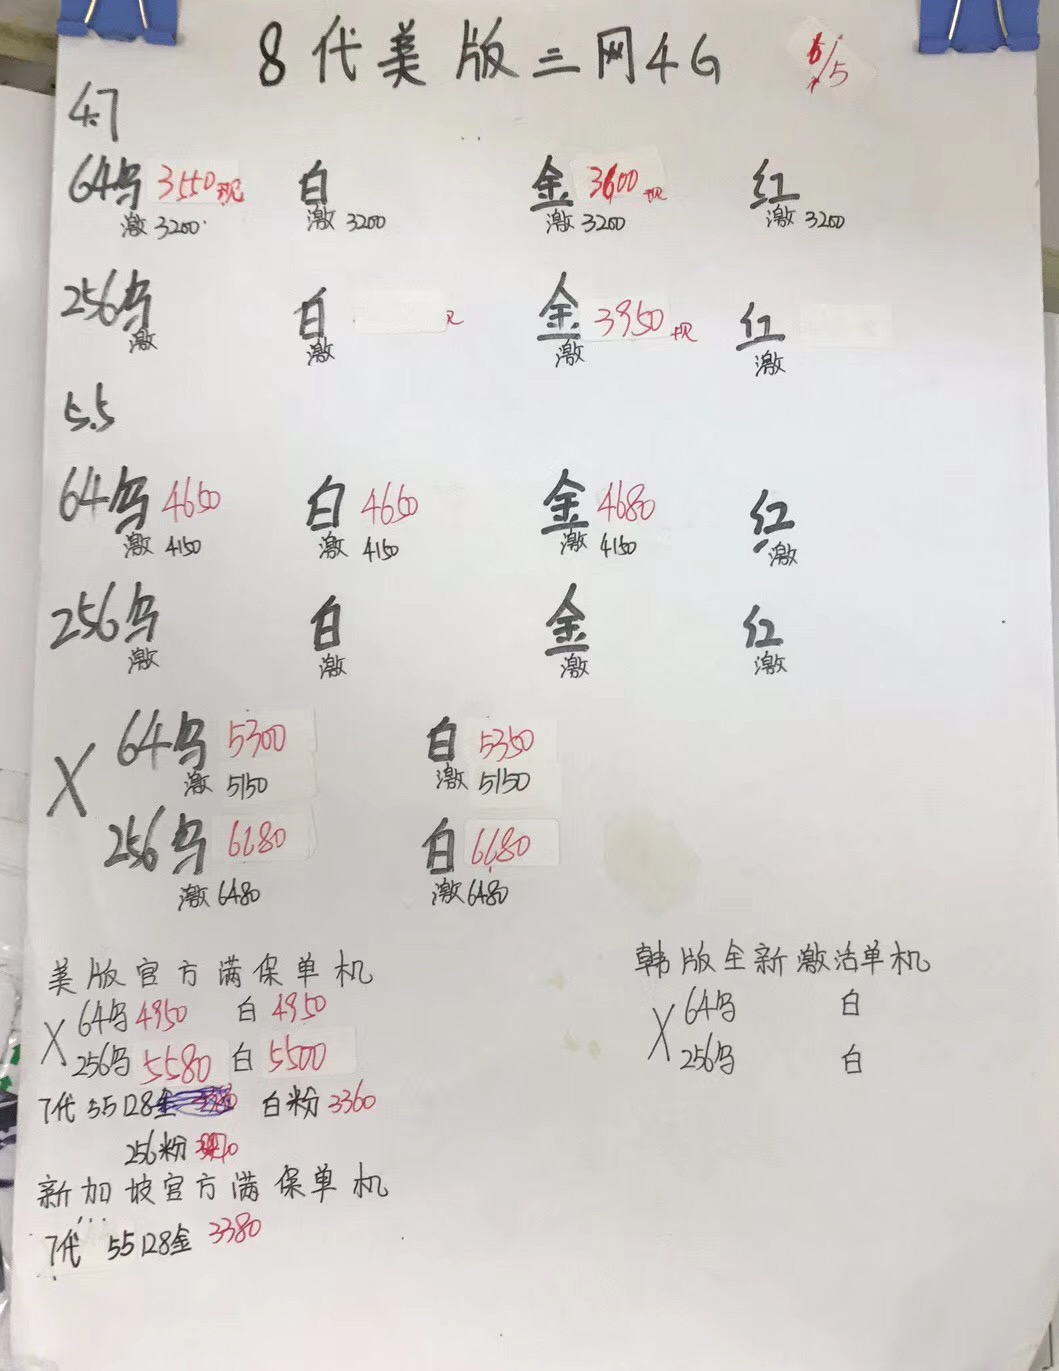 8代美版三网4G 6/5
4.7
64乌 3550现 白 金 3600现 红
激 3200 激 3200 激 3200 激 3200
256乌 白 金 3950现 红
激 激 激 激
5.5
64乌 4650 白 4650 金 4680 红
激 4150 激 4150 激 4150 激
256乌 白 金 红
激 激 激 激
X 64乌 5300 白 5350
激 5150 激 5150
256乌 6680 白 6680
激 6480 激 6480
美版官方满保单机
X 64乌 4950 白 4950
256乌 5580 白 5500
7代 55 128金 白粉 3360
256粉
新加坡官方满保单机
7代 55 128金 3380
韩版全新激活单机
X 64乌 白
256乌 白